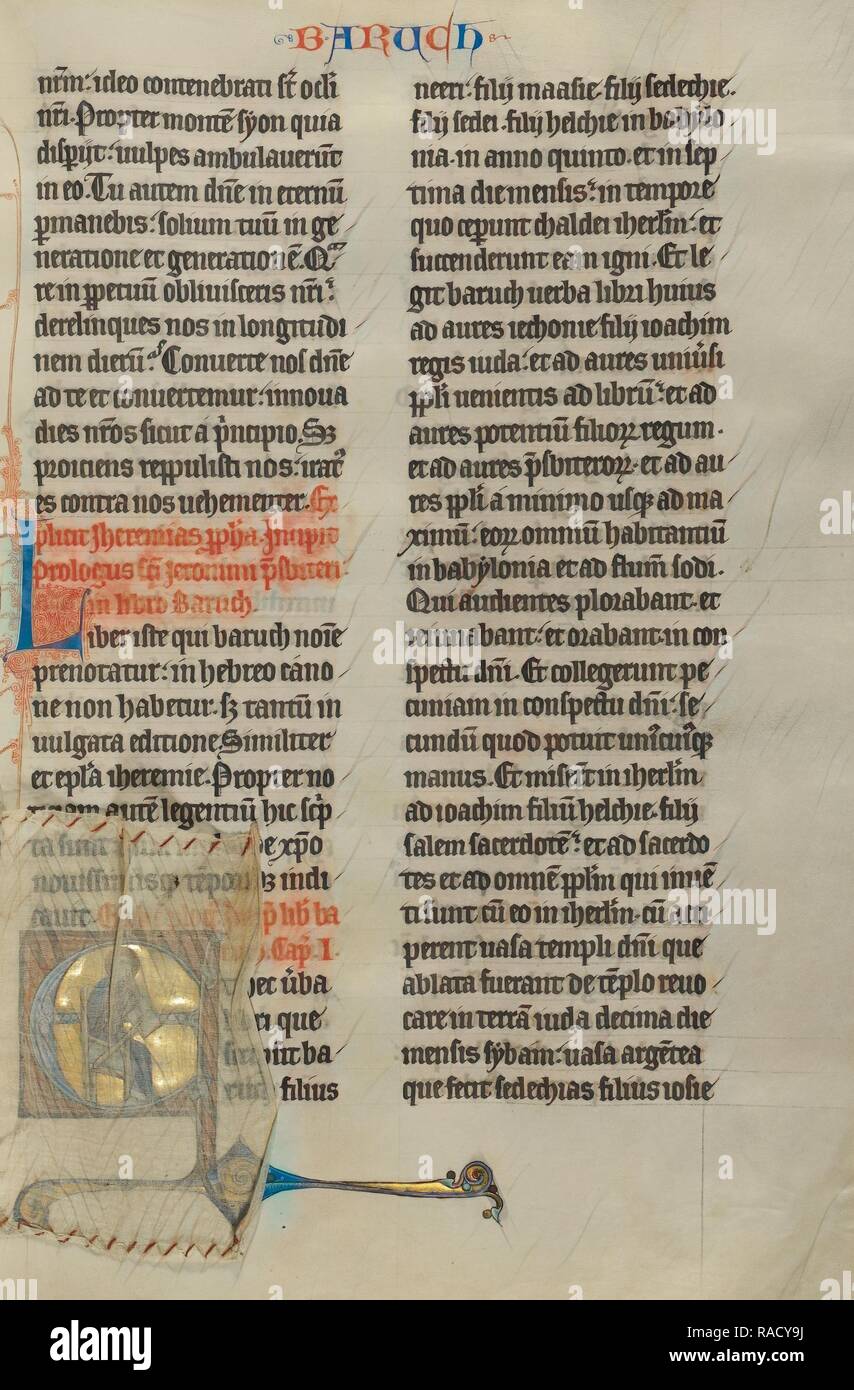 BARUCH
nr̄m: ideo contenebrati st̄ ocl̄i
nr̄i. Propter montē syon quia
disp̄ijt: uulpes ambulauerūt
in eo. Tu autem dn̄e in eternū
ꝑmanebis: solium tuū in ge
neratione et generationē. Qua
re in ꝑpetuū obliuisceris nr̄i:
derelinques nos in longitudi
nem dierū: Conuerte nos dn̄e
ad te et conuertemur: innoua
dies nr̄os sicut a p̄ncipio. Sꝫ
proiciens reppulisti nos: irat᷒
es contra nos uehementer. Ex
plicit Jheremias ꝓph̄a. Incipit
prologus sc̄i Jeronimi p̄sbiteri
in libro Baruch.
Liber iste qui baruch noīe
prenotatur: in hebreo cano
ne non habetur. sꝫ tantū in
uulgata editione. Similiter
et epl̄a iheremie. Propter no
autē legentiū hic sc̄p
ta sunt de xp̄o
nouissimisqꝫ tēporibꝫ indi
cant.
lib̄ ba
Cap̄. I.
hec ūba
libri que
scripsit ba
ruch filius
neeri. filij maasie. filij sedechie.
filij sedei. filij helchie in babylo
nia. in anno quinto. et in sep
tima die mensis: in tempore
quo ceperunt chaldei iherl̄m: et
succenderunt eam igni. Et le
git baruch uerba libri huius
ad aures iechonie filij ioachim
regis iuda: et ad aures uniūsi
ppl̄i uenientis ad librū: et ad
aures potentiū filioꝝ regum.
et ad aures p̄sbiteroꝝ. et ad au
res ppl̄i a minimo usqꝫ ad ma
ximū: eoꝝ omniū habitantiū
in babylonia et ad flum̄ sodi.
Qui audientes plorabant. et
ieiunabant: et orabant in con
spectu dn̄i. Et collegerunt pe
cuniam in conspectu dn̄i: se
cundū quod potuit uni᷒cuiꝰqꝫ
manus. Et miserūt in iherl̄m
ad ioachim filiū helchie. filij
salem sacerdotē: et ad sacerdo
tes et ad omnē ppl̄m qui inuē
ti sunt cū eo in iherl̄m. cū acci
perent uasa templi dn̄i que
ablata fuerant de tēplo reuo
care in terrā iuda decima die
mensis syban: uasa argētea
que fecit sedechias filius iosie
alamy
Image ID: RACY9J
www.alamy.com